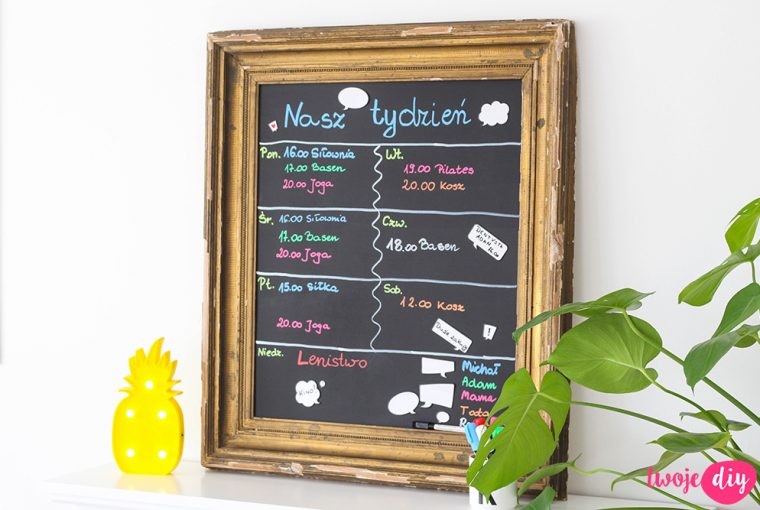 Nasz tydzień
Pon. 16.00 Siłownia
17.00 Basen
20.00 Joga
Wt.
19.00 Pilates
20.00 Kosz
Śr. 16.00 Siłownia
17.00 Basen
20.00 Joga
Czw.
18.00 Basen
DENTYSTA
ADAM
Pt. 15.00 Siłka
20.00 Joga
Sob.
12.00 Kosz
Duże zakupy
!
Niedz. Lenistwo
KINO
Michał
Adam
Mama
Tata
twoje diy